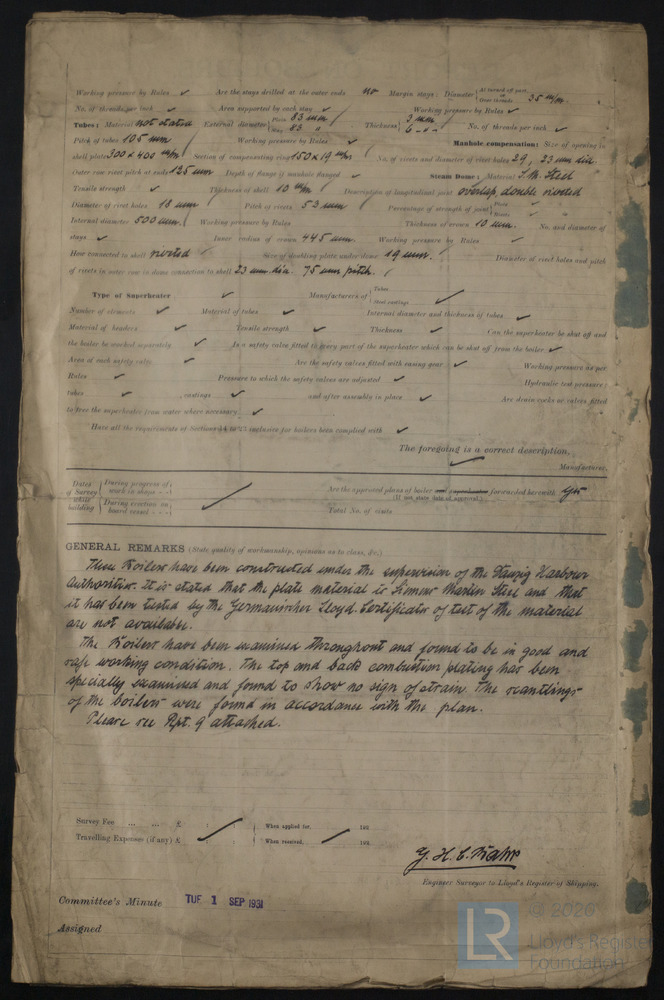 Working pressure by Rules ✓ Are the stays drilled at the outer ends no Margin stays: Diameter { At turned off part, Over threads 35 m/m.
No. of threads per inch ✓ Area supported by each stay ✓ Working pressure by Rules ✓
Tubes: Material not stated External diameter { Plain 83 mm Stay 83 " Thickness { 3 mm 6 - " - No. of threads per inch ✓
Pitch of tubes 105 mm Working pressure by Rules ✓ Manhole compensation: Size of opening in
shell plate 300 x 400 m/m Section of compensating ring 150 x 19 m/m No. of rivets and diameter of rivet holes 29, 23 mm dia.
Outer row rivet pitch at ends 125 mm Depth of flange if manhole flanged ✓ Steam Dome: Material S.M. Steel
Tensile strength ✓ Thickness of shell 10 m/m Description of longitudinal joint overlap, double riveted
Diameter of rivet holes 18 mm. Pitch of rivets 53 mm Percentage of strength of joint { Plate ✓ Rivets ✓
Internal diameter 500 mm. Working pressure by Rules Thickness of crown 10 mm. No. and diameter of
stays ✓ Inner radius of crown 445 mm. Working pressure by Rules ✓
How connected to shell riveted Size of doubling plate under dome 19 mm. Diameter of rivet holes and pitch
of rivets in outer row in dome connection to shell 23 mm dia. 75 mm pitch.
Type of Superheater ✓ Manufacturers of { Tubes Steel castings ✓
Number of elements ✓ Material of tubes ✓ Internal diameter and thickness of tubes ✓
Material of headers ✓ Tensile strength ✓ Thickness ✓ Can the superheater be shut off and
the boiler be worked separately ✓ Is a safety valve fitted to every part of the superheater which can be shut off from the boiler ✓
Area of each safety valve ✓ Are the safety valves fitted with easing gear ✓ Working pressure as per
Rules ✓ Pressure to which the safety valves are adjusted ✓ Hydraulic test pressure:
tubes ✓ , castings ✓ and after assembly in place ✓ Are drain cocks or valves fitted
to free the superheater from water where necessary ✓
Have all the requirements of Sections 14 to 23 inclusive for boilers been complied with ✓
The foregoing is a correct description,
✓ Manufacturer.
Dates of Survey while building { During progress of work in shops - - { During erection on board vessel - - - ✓ Are the approved plans of boiler and superheater forwarded herewith yes
(If not state date of approval.)
Total No. of visits
GENERAL REMARKS (State quality of workmanship, opinions as to class, &c.)
These Boilers have been constructed under the supervision of the Danzig Harbour
Authorities. It is stated that the plate material is Siemens Martin Steel and that
it has been tested by the Germanischer Lloyd. Certificates of test of the material
are not available.
The Boilers have been examined throughout and found to be in good and
safe working condition. The top and back combustion plating has been
specially examined and found to show no sign of strain. The scantlings
of the boilers were found in accordance with the plan.
Please see Rpt. 9 attached.
Survey Fee ... ... £ : : When applied for, 192
Travelling Expenses (if any) £ : : When received, 192
Engineer Surveyor to Lloyd's Register of Shipping.
Committee's Minute TUE 1 SEP 1931
Assigned
LR © 2020
Lloyd's Register
Foundation